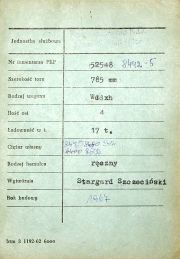 Jednostka służbowa
Nr inwentarza PKP 52548 8492-5
Szerokość toru 785 mm
Rodzaj wagonu Wddxh
Ilość osi 4
Ładowność w t. 17 t.
Ciężar własny
Rodzaj hamulca ręczny
Wytwórnia Stargard Szczeciński
Rok budowy 1967